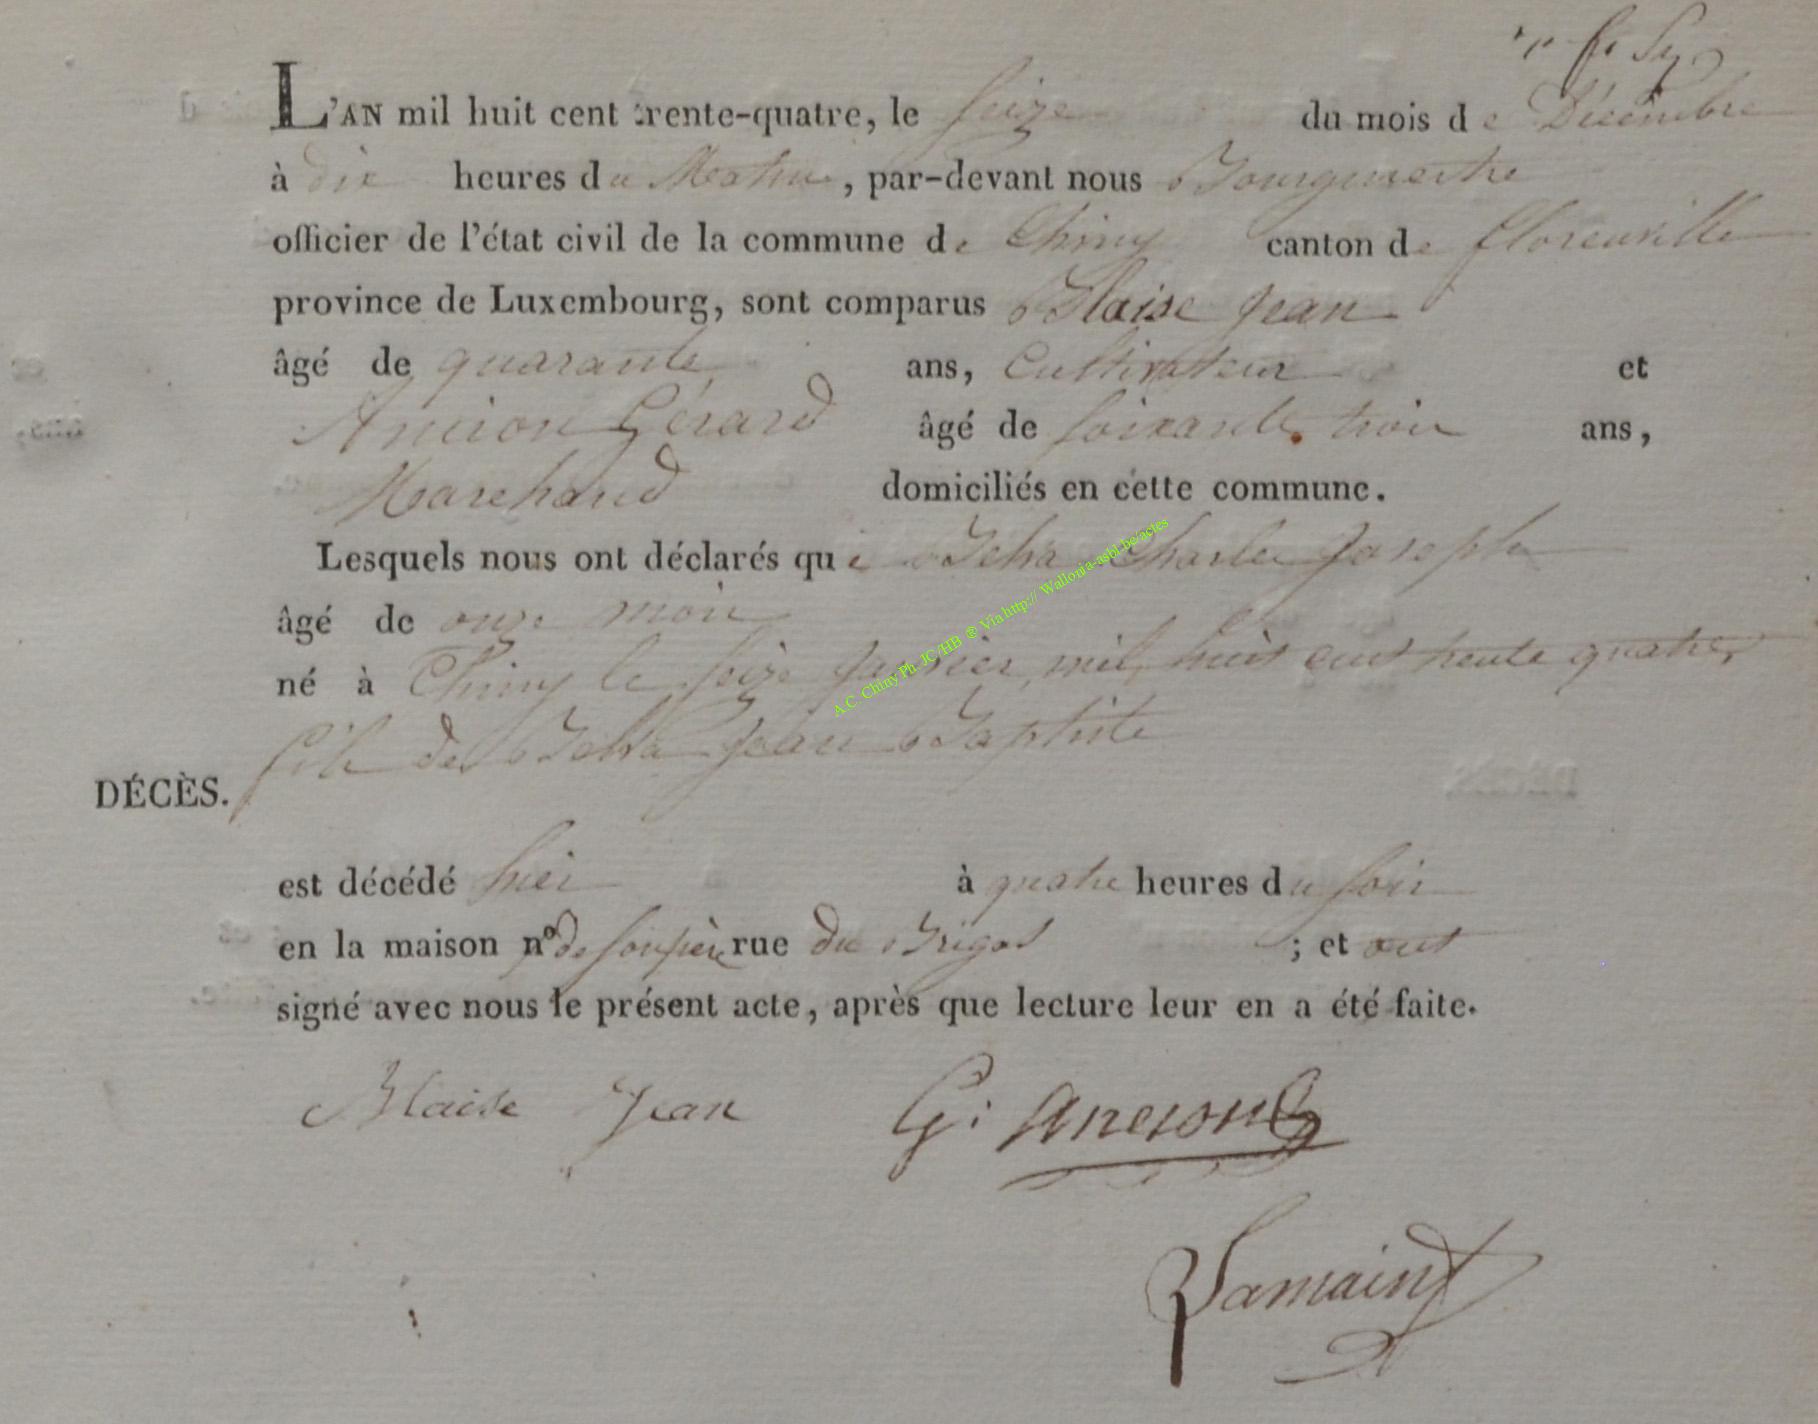 L'AN mil huit cent trente-quatre, le seize du mois de Décembre
à dix heures du Matin, par-devant nous Bourgmestre
officier de l'état civil de la commune de Chiny canton de florenville
province de Luxembourg, sont comparus Blaise Jean
âgé de quarante ans, Cultivateur et
Ancion Gérard âgé de soixante trois ans,
Marchand domiciliés en cette commune.
Lesquels nous ont déclarés que Charles Joseph
âgé de onze mois
né à Chiny le seize Janvier mil huit cent trente quatre,
fils de Jean Baptiste
DÉCÈS.
est décédé hier à quatre heures du soir
en la maison n° de son père rue du ; et ont
signé avec nous le présent acte, après que lecture leur en a été faite.
Blaise Jean G: ancion
Lamaint
A.C. Chiny Ph. JC/HB ® Via http:// Wallonia-asbl.be/actes